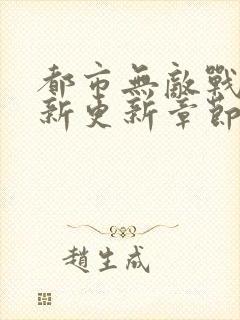 都市無敵戰
新更新章節
趙生成